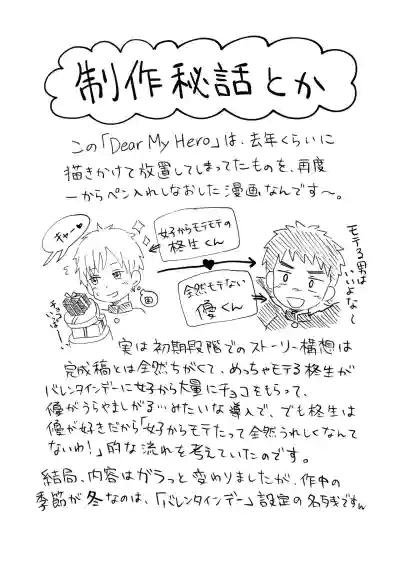 制作秘話とか
この「Dear My Hero」は、去年くらいに
描きかけて放置してしまってたものを、再度
一からペン入れしなおした漫画なんです〜。
キャー♡
女子からモテモテの
格生くん
全然モテない
優くん
モテる男は
いいよな〜
実は初期段階でのストーリー構想は
完成稿とは全然ちがくて、めっちゃモテる格生が
バレンタインデーに女子から大量にチョコをもらって、
優がうらやましがる…みたいな導入で、でも格生は
優が好きだから「女子からモテたって全然うれしくなんて
ないわ!」的な流れを考えていたのです。
結局、内容はガラっと変わりましたが、作中の
季節が冬なのは、「バレンタインデー」設定の名残ですm